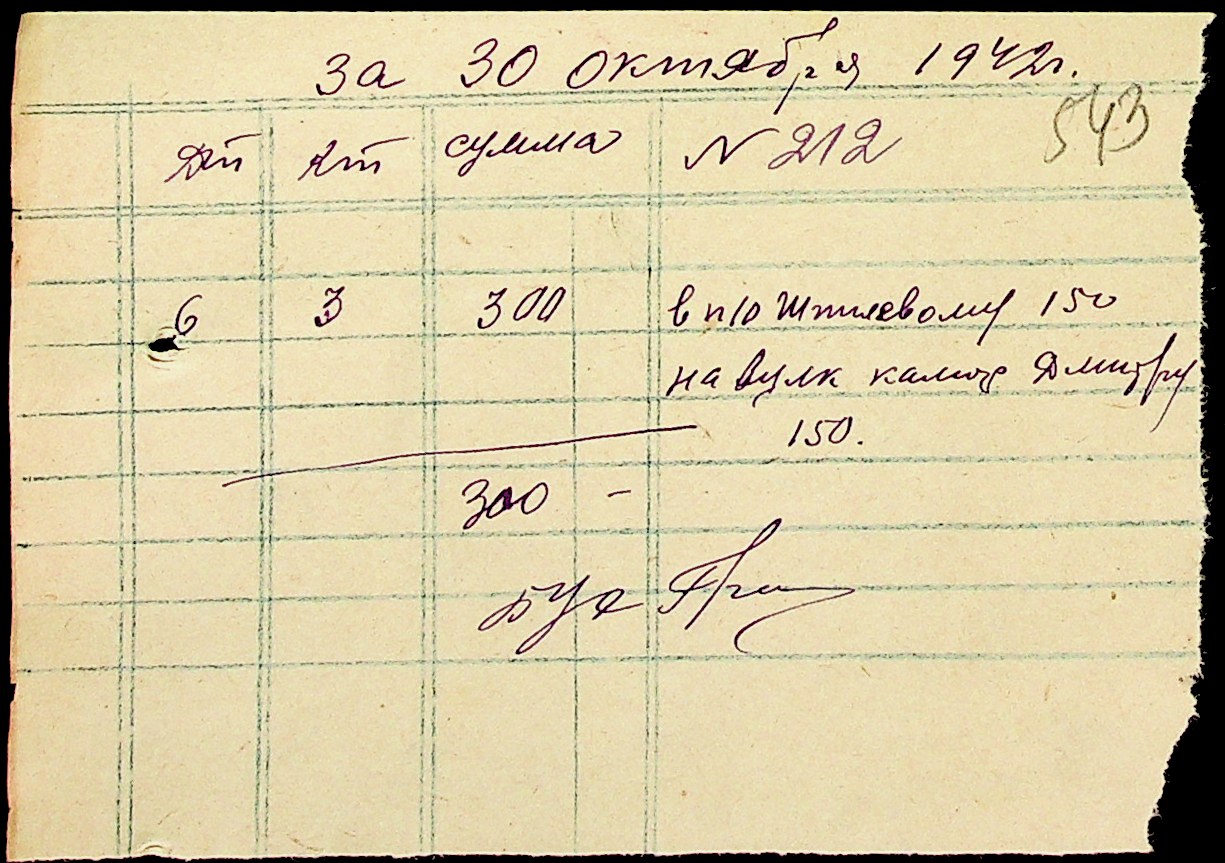 за 30 октября 1942г.
543
Дт Кт сумма N 212
6 3 300 в п/о 150
на вулк Дмитру
150.
300 -
Бух